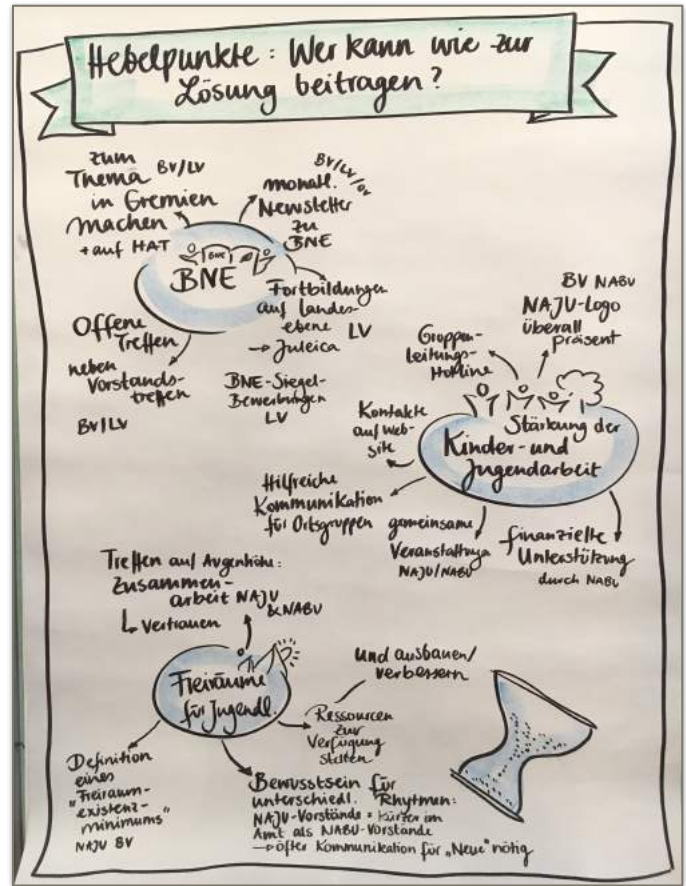 Hebelpunkte: Wer kann wie zur
Lösung beitragen?
zum
Thema BV/LV
in Gremien
machen
+ auf HAT
BV/LV/OV
monatl.
Newsletter
zu
BNE
BNE
BNE
Fortbildungen
auf Landes-
ebene LV
→ Juleica
Offene
Treffen
neben
Vorstands-
treffen
BV/LV
BNE-Siegel-
Bewerbungen
LV
BV NABU
NAJU-Logo
überall
präsent
Gruppen-
leitungs-
Hotline
Stärkung der
Kinder- und
Jugendarbeit
Kontakte
auf Web-
site
Hilfreiche
Kommunikation
für Ortsgruppen
gemeinsame
NAJU/NABU
finanzielle
Unterstützung
durch NABU
Treffen auf Augenhöhe:
Zusammen-
arbeit NAJU
& NABU
↳ Vertrauen
Freiräume
für Jugendl.
und ausbauen/
verbessern
Ressourcen
zur
Verfügung
stellen
Definition
eines
"Freiraum-
existenz-
minimums"
NAJU BV
Bewusstsein für
unterschiedl. Rhytmen:
NAJU-Vorstände = kürzer im
Amt als NABU-Vorstände
→ öfter Kommunikation für „Neue" nötig